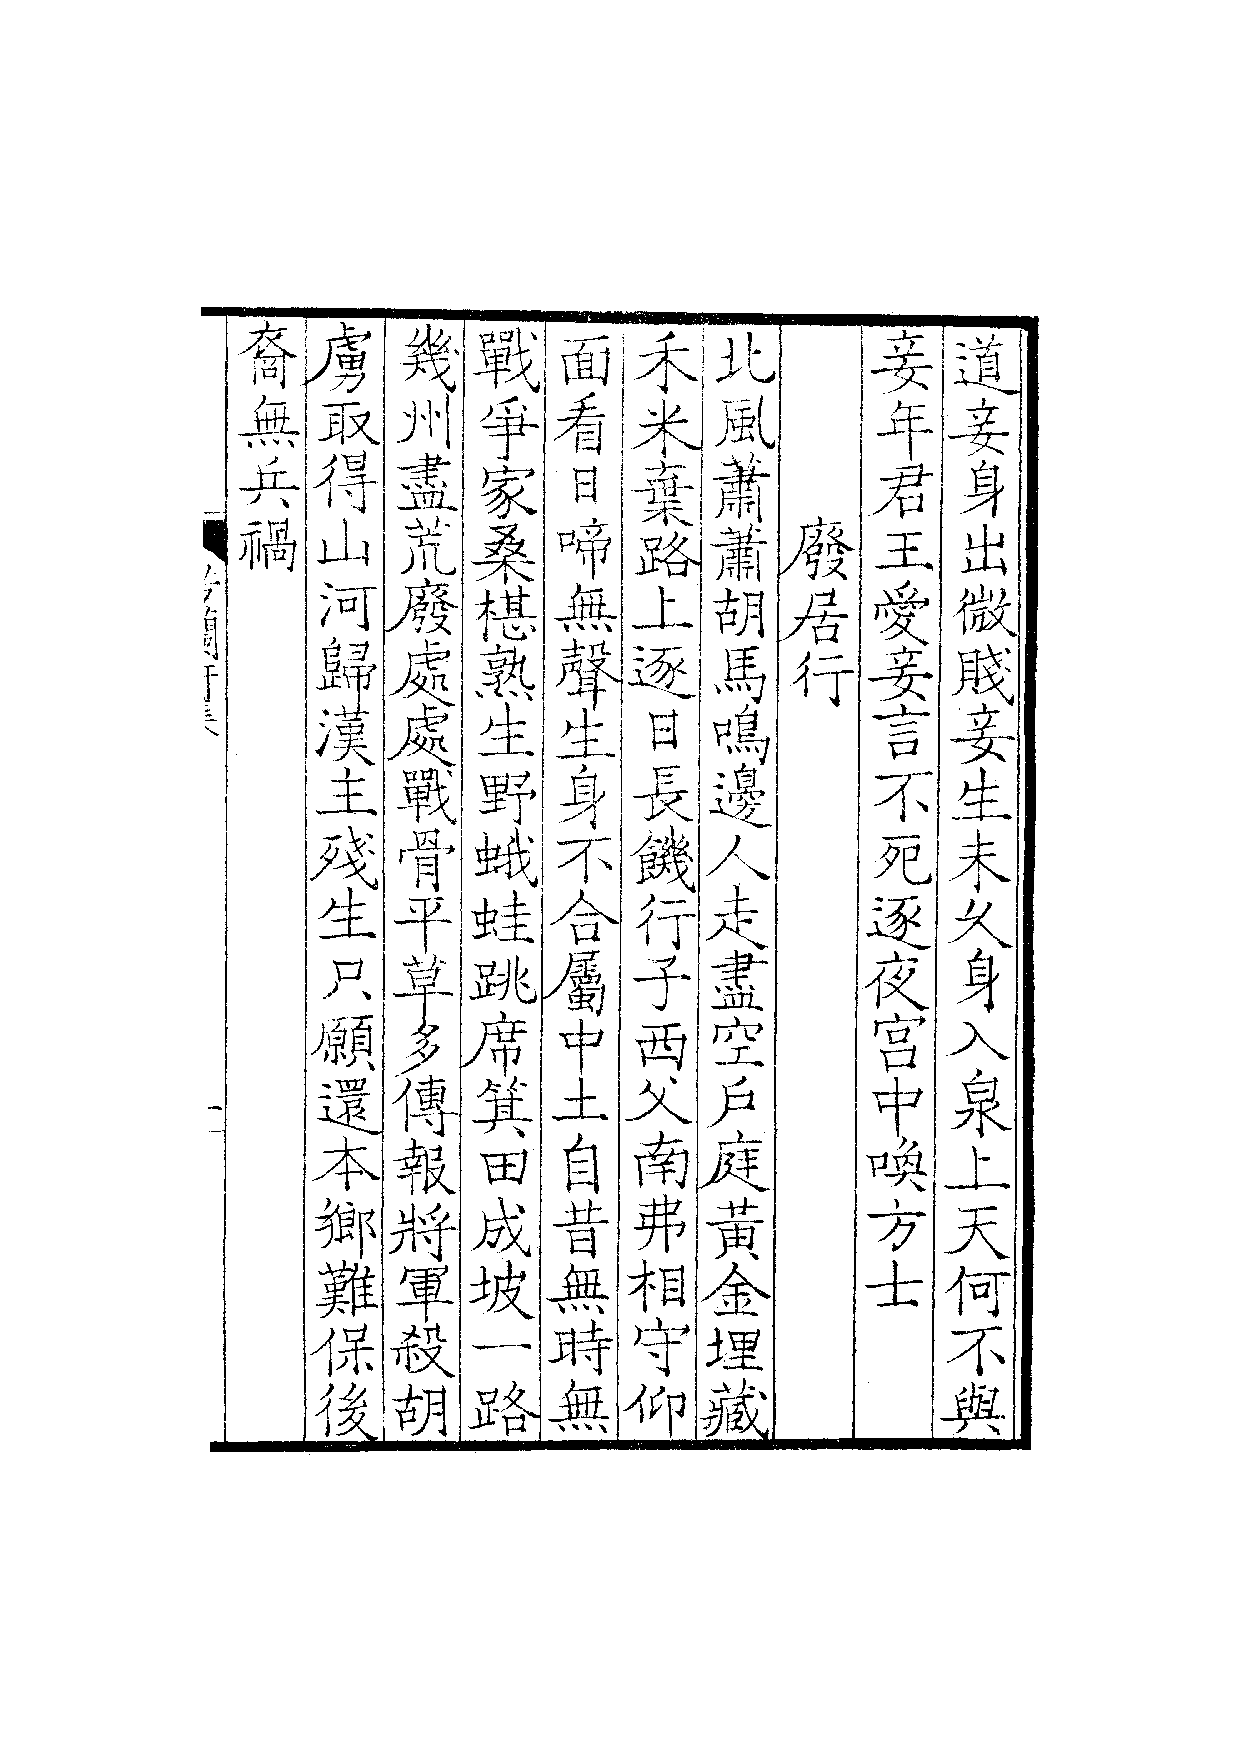 道妾身出微賤妾生未久身入泉上天何不與
妾年君王愛妾言不死逐夜宮中喚方士
廢居行
北風蕭蕭胡馬鳴邊人走盡空戶庭黃金埋藏
禾米棄路上逐日長饑行子西父南弗相守仰
面看日啼無聲生身不合屬中土自昔無時無
戰爭家桑椹熟生野蛾蛙跳席箕田成坡一路
幾州盡荒廢處處戰骨平草多傳報將軍殺胡
虜取得山河歸漢主殘生只願還本鄉難保後
裔無兵禍